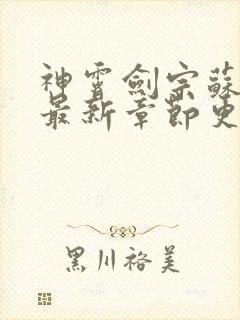 神霄劍宗蘇
最新章節更
黑川裕美